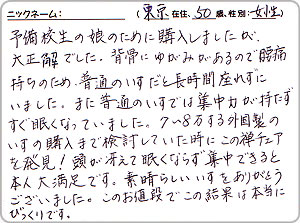 ニックネーム:　　　　　　(東京 在住、50 歳、性別:女性)
予備校生の娘のために購入しましたが、
大正解でした。背骨にゆがみがあるので腰痛
持ちのため、普通のいすだと長時間座れずに
いました。また普通のいすでは集中力が持たず
すぐ眠くなっていました。7〜8万する外国製の
いすの購入まで検討していた時にこの禅チェア
を発見!頭が冴えて眠くならず集中できると
本人大満足です。素晴らしいいすをありがとう
ございました。このお値段でこの結果は本当に
びっくりです。